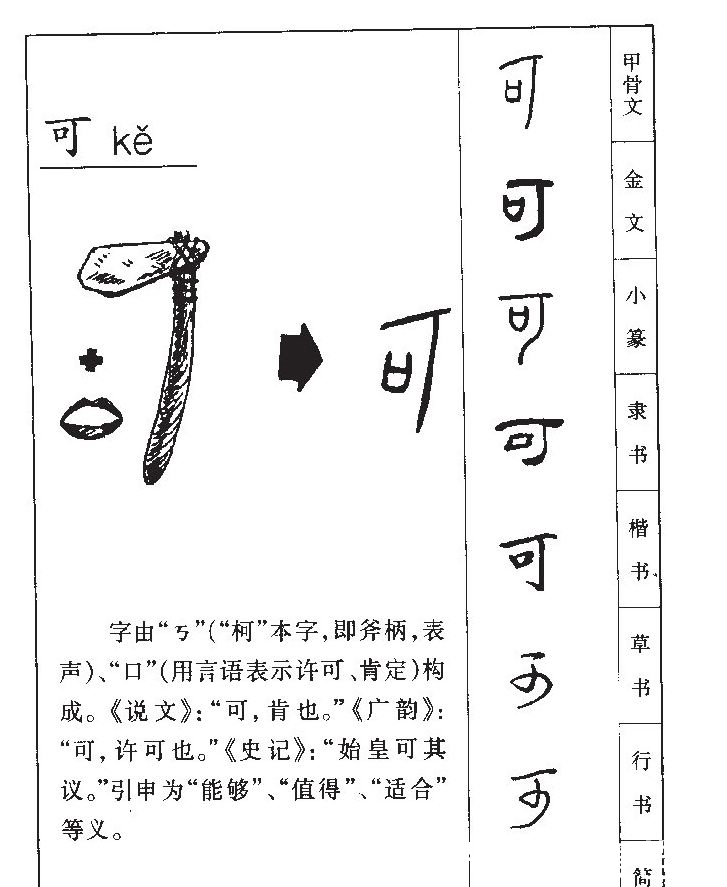 可 kě
可
字由“ㄎ”(“柯”本字,即斧柄,表
声)、“口”(用言语表示许可、肯定)构
成。《说文》:“可,肯也。”《广韵》:
“可,许可也。”《史记》:“始皇可其
议。”引申为“能够”、“值得”、“适合”
等义。
可 甲骨文
可 金文
可 小篆
可 隶书
可 楷书
可 草书
可 行书
简